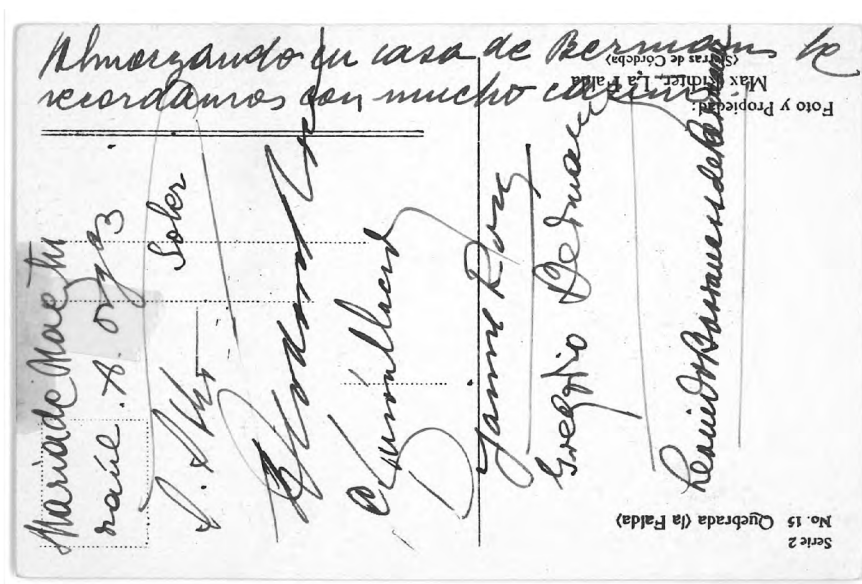 Almorzando en casa de Bermann te
recordamos con mucho cariño
Maria de Maeztu
Raúl A. Orgaz
Soler
Jaime Roig
Gregorio Bermann
Leonilda Barrancos de Bermann
Foto y Propiedad:
Max Richter, La Falda
(Sierras de Córdoba)
Serie 2
No. 15 Quebrada (la Falda)